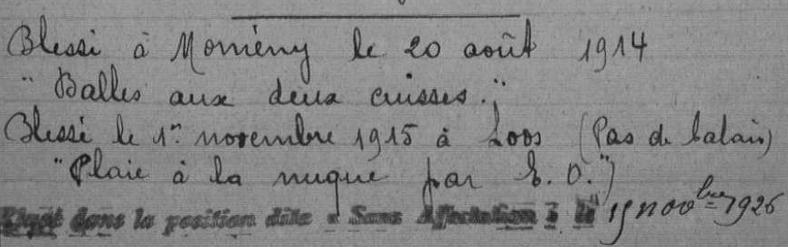 Blessé à Nomény le 20 août 1914
"Balles aux deux cuisses."
Blessé le 1er novembre 1915 à Loos (Pas de Calais)
"Plaie à la nuque par E. O.")
dans la position dite « Sans Affectation » le 15 novbre 1926